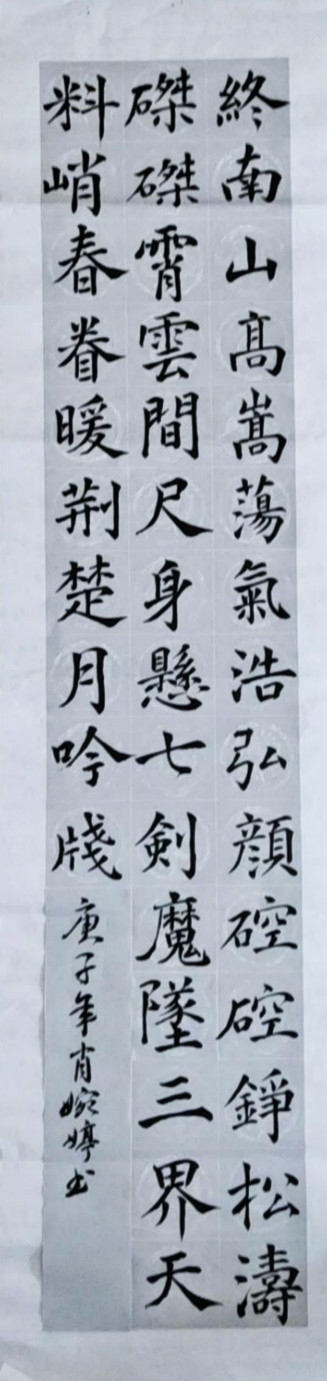 終南山高嵩蕩氣浩弘顔硿硿錚松濤
磔磔霄雲間尺身懸七剣魔墜三界天
料峭春眷暖荆楚月吟牋
庚子年肖婉婷书